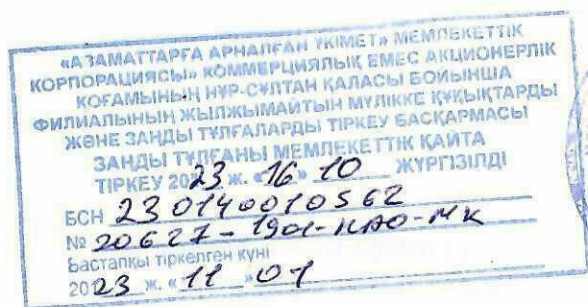 «АЗАМАТТАРҒА АРНАЛҒАН ҮКІМЕТ» МЕМЛЕКЕТТІК
КОРПОРАЦИЯСЫ» КОММЕРЦИЯЛЫҚ ЕМЕС АКЦИОНЕРЛІК
ҚОҒАМЫНЫҢ НҰР-СҰЛТАН ҚАЛАСЫ БОЙЫНША
ФИЛИАЛЫНЫҢ ЖЫЛЖЫМАЙТЫН МҮЛІККЕ ҚҰҚЫҚТАРДЫ
ЖӘНЕ ЗАҢДЫ ТҰЛҒАЛАРДЫ ТІРКЕУ БАСҚАРМАСЫ
ЗАҢДЫ ТҰЛҒАНЫ МЕМЛЕКЕТТІК ҚАЙТА
ТІРКЕУ 2023 ж. «16» 10 ЖҮРГІЗІЛДІ
БСН 230140010562
№ 20627-1901-НАО-МК
Бастапқы тіркелген күні
2023 ж. «11» 01